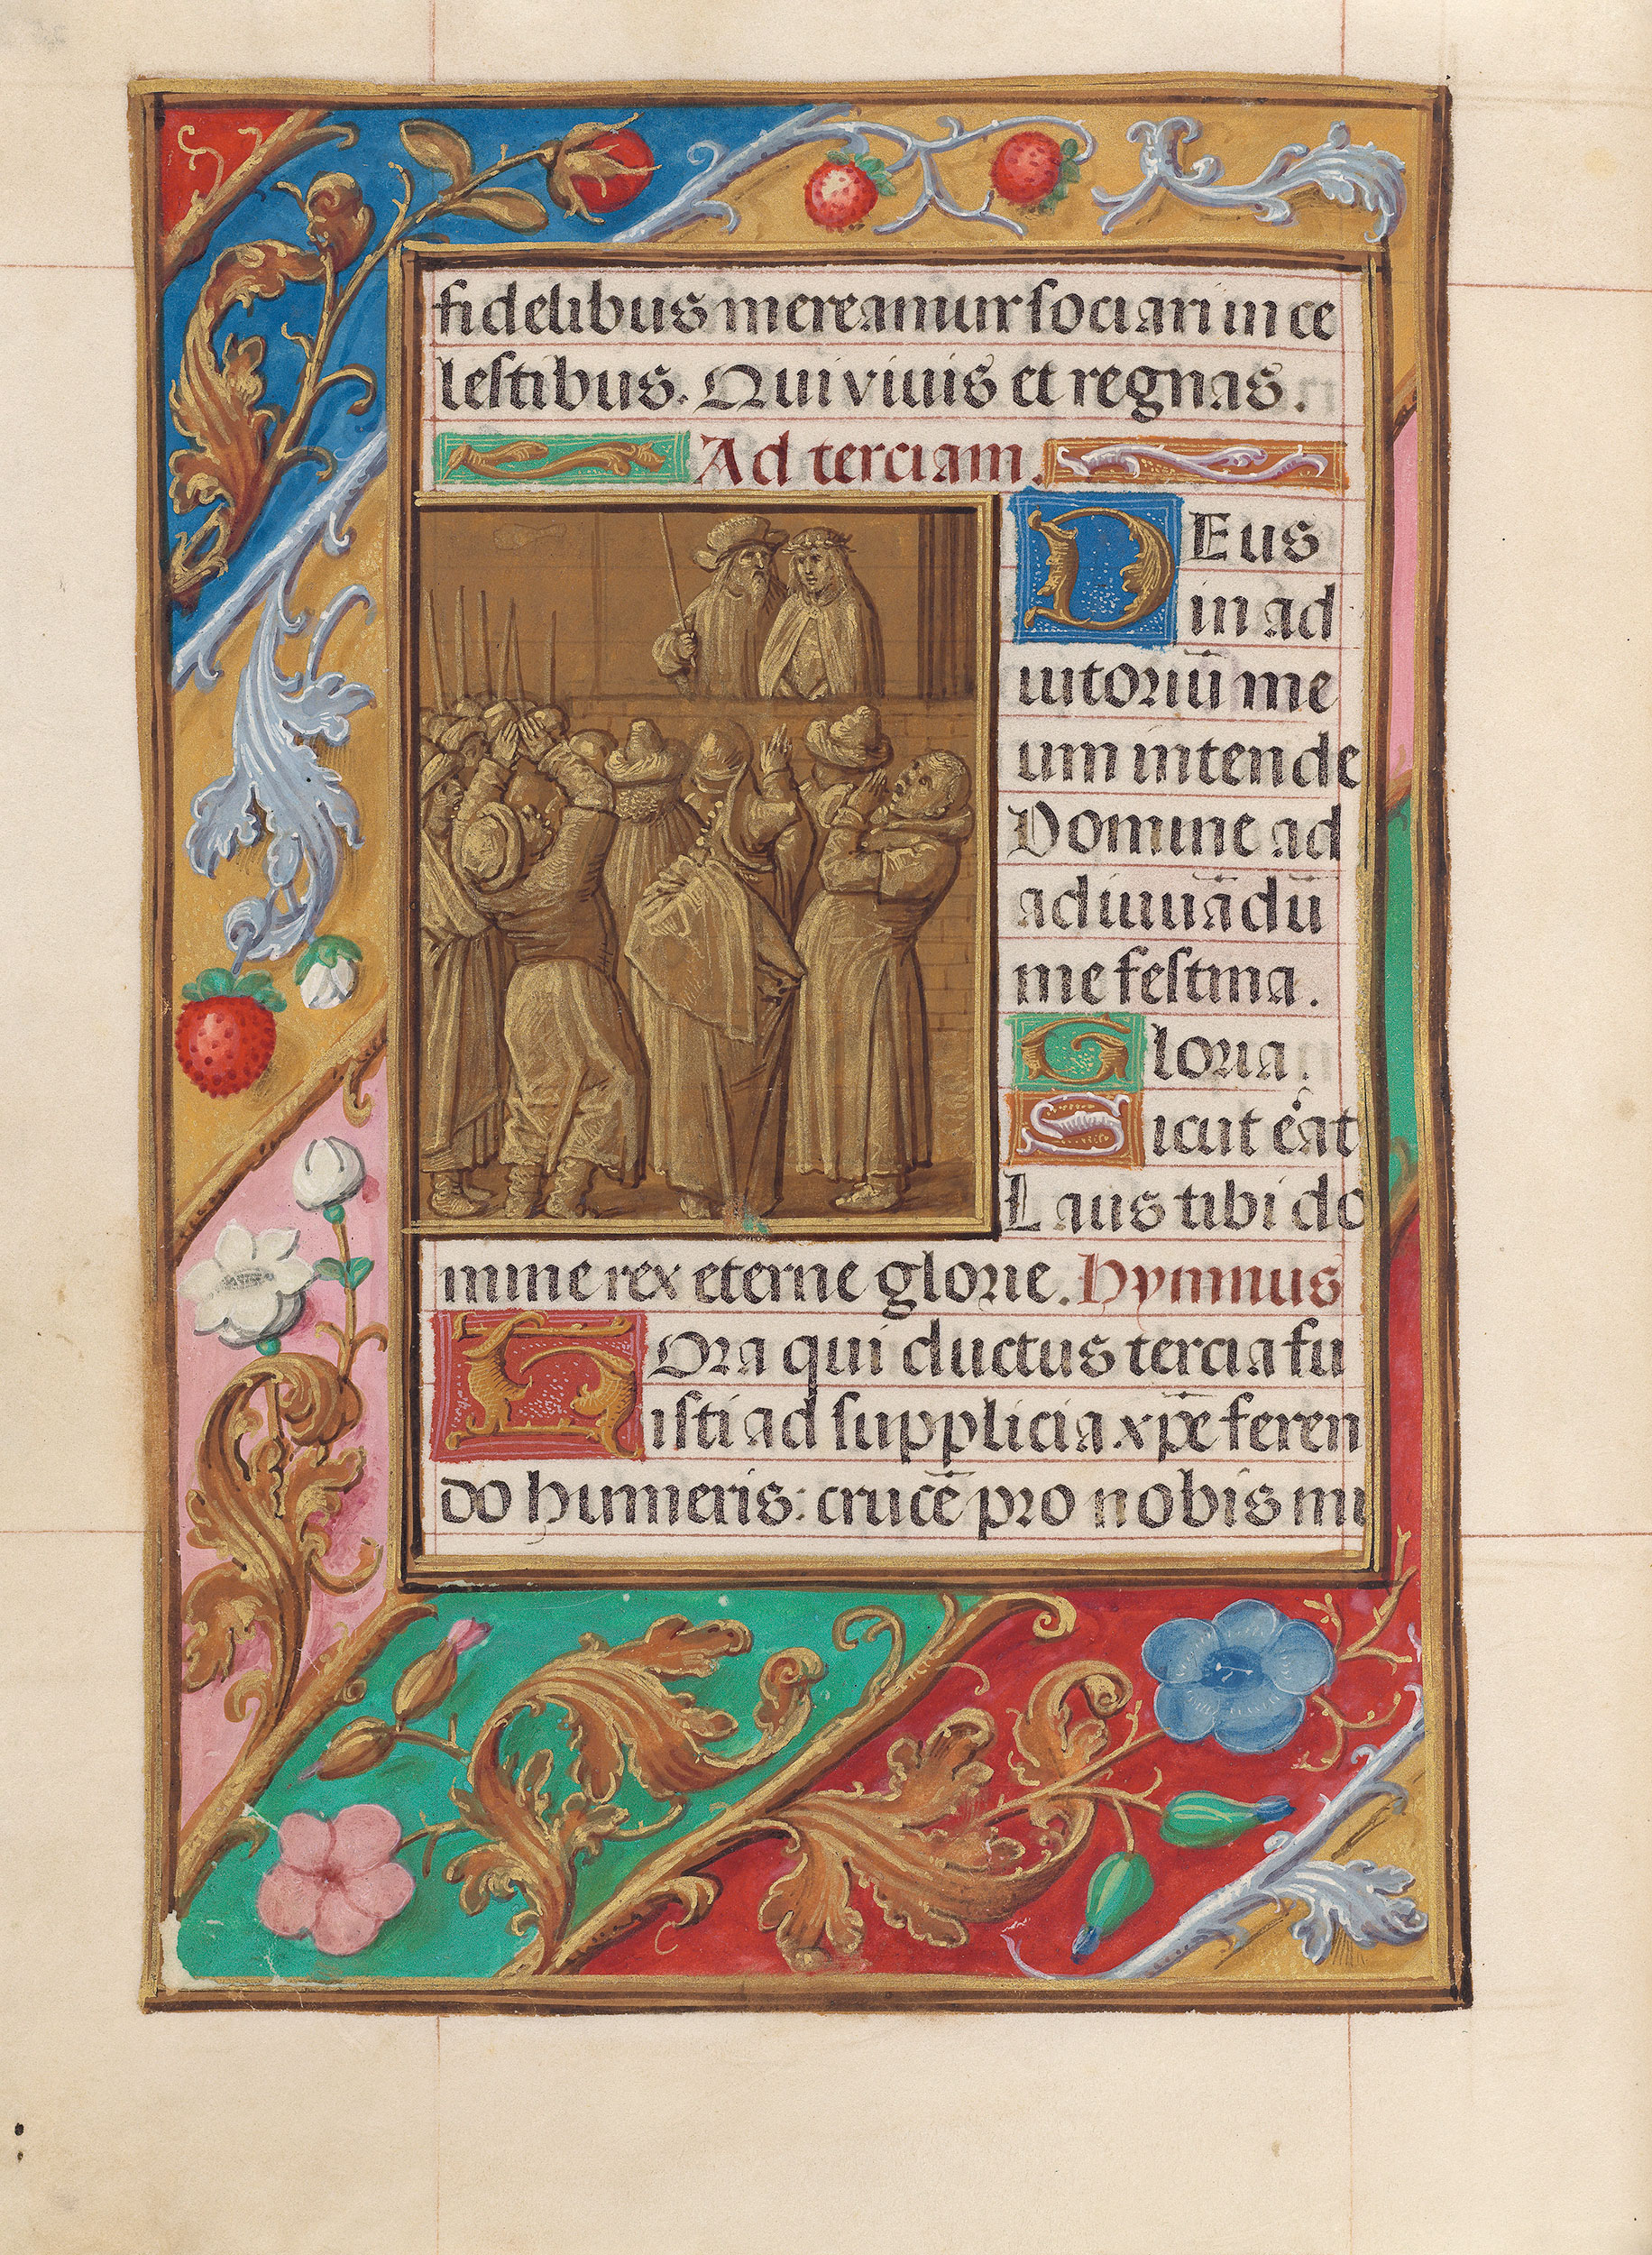 fidelibus mereamur sociari in ce
lestibus. Qui viuis et regnas.
Ad terciam.
DEus
in ad
iutoriū me
um intende
Domine ad
adiuuādū
me festina.
Gloria.
Sicut erat
Laus tibi do
mine rex eterne glorie. Hymnus
HOra qui ductus tercia fu
isti ad supplicia xp̄e feren
do humeris: crucē pro nobis mi